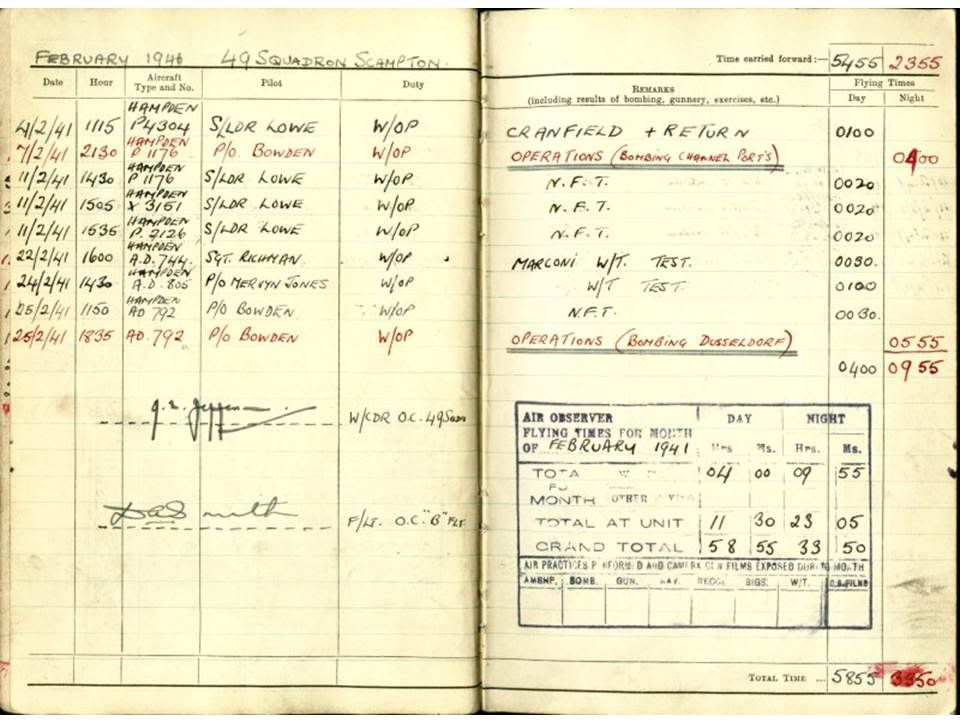 FEBRUARY 1941 49 SQUADRON SCAMPTON.
Time carried forward:— 5455 2355
Date Hour Aircraft Type and No. Pilot Duty REMARKS (including results of bombing, gunnery, exercises, etc.) Flying Times Day Night
4/2/41 1115 HAMPDEN P4304 S/LDR LOWE W/OP CRANFIELD + RETURN 0100
7/2/41 2130 HAMPDEN P 1176 P/O. BOWDEN W/OP OPERATIONS (BOMBING CHANNEL PORT'S) 0400
11/2/41 1430 HAMPDEN P 1176 S/LDR LOWE W/OP N.F.T. 0020
11/2/41 1505 HAMPDEN X 3151 S/LDR LOWE W/OP N.F.T. 0020
11/2/41 1535 HAMPDEN P. 2126 S/LDR LOWE W/OP N.F.T. 0020
22/2/41 1600 HAMPDEN A.D. 744. SGT. RICHMAN. W/OP MARCONI W/T. TEST. 0030.
24/2/41 1430 HAMPDEN A.D. 805 P/O MERVYN JONES W/OP W/T TEST. 0100
25/2/41 1150 HAMPDEN AD 792 P/O BOWDEN W/OP N.F.T. 0030.
25/2/41 1835 AD. 792 P/O BOWDEN W/OP OPERATIONS (BOMBING DUSSELDORF) 0555
0400 0955
W/CDR O.C. 49 SQDN
F/LT. O.C. "B" FLT.
AIR OBSERVER DAY NIGHT
FLYING TIMES FOR MONTH
OF FEBRUARY 1941 Hrs Ms. Hrs. Ms.
TOTAL 04 00 09 55
MONTH OTHER
TOTAL AT UNIT 11 30 23 05
GRAND TOTAL 58 55 33 50
AIR PRACTICES PERFORMED AND CAMERA GUN FILMS EXPOSED DURING MONTH
AMBNP. BOMB. GUN. NAV. RECCE SIGS. W/T. C.G.FILMS
TOTAL TIME ... 5855 3350